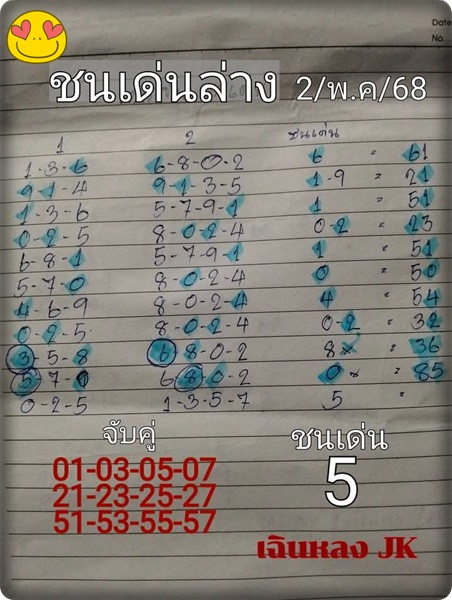 Date
No.
ชนเด่นล่าง 2/พ.ค/68
1 2 ชนเด่น
1-3-6 6-8-0-2 6 = 61
9-1-4 9-1-3-5 1-9 = 21
1-3-6 5-7-9-1 1 = 51
0-2-5 8-0-2-4 0-2 = 23
6-8-1 5-7-9-1 1 = 51
5-7-0 8-0-2-4 0 = 50
4-6-9 8-0-2-4 4 = 54
0-2-5 8-0-2-4 0-2 = 32
3-5-8 6-8-0-2 8x = 36
5-7-0 6-8-0-2 0x = 85
0-2-5 1-3-5-7 5 =
จับคู่ ชนเด่น
01-03-05-07
21-23-25-27
51-53-55-57
5
เฉินหลง JK